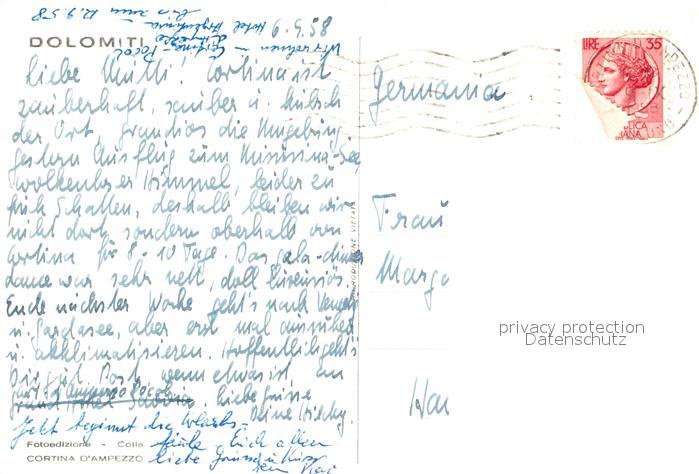 6.9.58
Wir wohnen in
Cortina Pocol
d'Ampezzo
Hotel Argentina
bis zum 12.9.58
DOLOMITI
Liebe Mutti! Cortina ist
zauberhaft, sauber u. hübsch
der Ort, grandios die Umgebung
gestern Ausflug zum Misurina-See
wolkenloser Himmel, leider zu
früh Schatten, deshalb bleiben wir
nicht dort sondern oberhalb von
Cortina für 8-10 Tage. Das gala-dinner
dance war sehr nett, doll luxuriös.
Ende nächster Woche geht's nach Venedig
u. Gardasee, aber erst mal ausruhen
u. akklimatisieren. Hoffentlich geht's
Dir gut. Post, wenn etwas ist, an
d'Ampezzo Pocol
Grand Hotel Savoia
liebe Grüsse
Deine
Jetzt beginnt die
Euch allen
liebe Grüsse u. Küsse
Fotoedizione - Colle
CORTINA D'AMPEZZO
RIPRODUZIONE VIETATA
Germania
Frau
Marga
Han
LIRE 35
privacy protection
Datenschutz